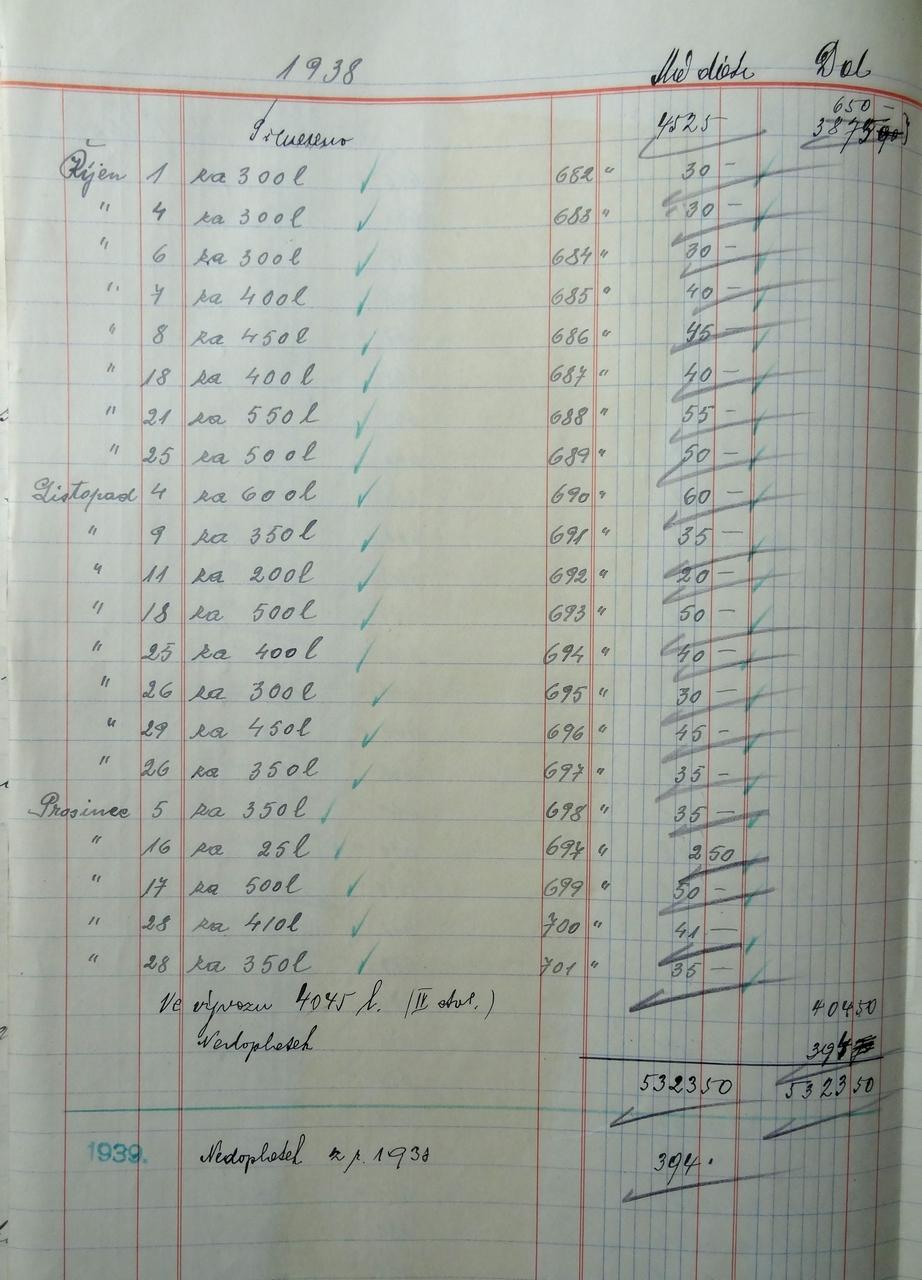 1938 Má dáti Dal
650 –
Přeneseno 4525 – 3875
Říjen 1 za 300 l 682 " 30 –
" 4 za 300 l 683 " 30 –
" 6 za 300 l 684 " 30 –
" 7 za 400 l 685 " 40 –
" 8 za 450 l 686 " 45 –
" 18 za 400 l 687 " 40 –
" 21 za 550 l 688 " 55 –
" 25 za 500 l 689 " 50 –
Listopad 4 za 600 l 690 " 60 –
" 9 za 350 l 691 " 35 –
" 11 za 200 l 692 " 20 –
" 18 za 500 l 693 " 50 –
" 25 za 400 l 694 " 40 –
" 26 za 300 l 695 " 30 –
" 29 za 450 l 696 " 45 –
" 26 za 350 l 697 " 35 –
Prosinec 5 za 350 l 698 " 35 –
" 16 za 25 l 697 " 2 50
" 17 za 500 l 699 " 50 –
" 28 za 410 l 700 " 41 –
" 28 za 350 l 701 " 35 –
Ve vývozu 4045 l. (IV. 404 50
Nedoplatek 394
5323 50 5323 50
1939. Nedoplatek z r. 1938 394 .